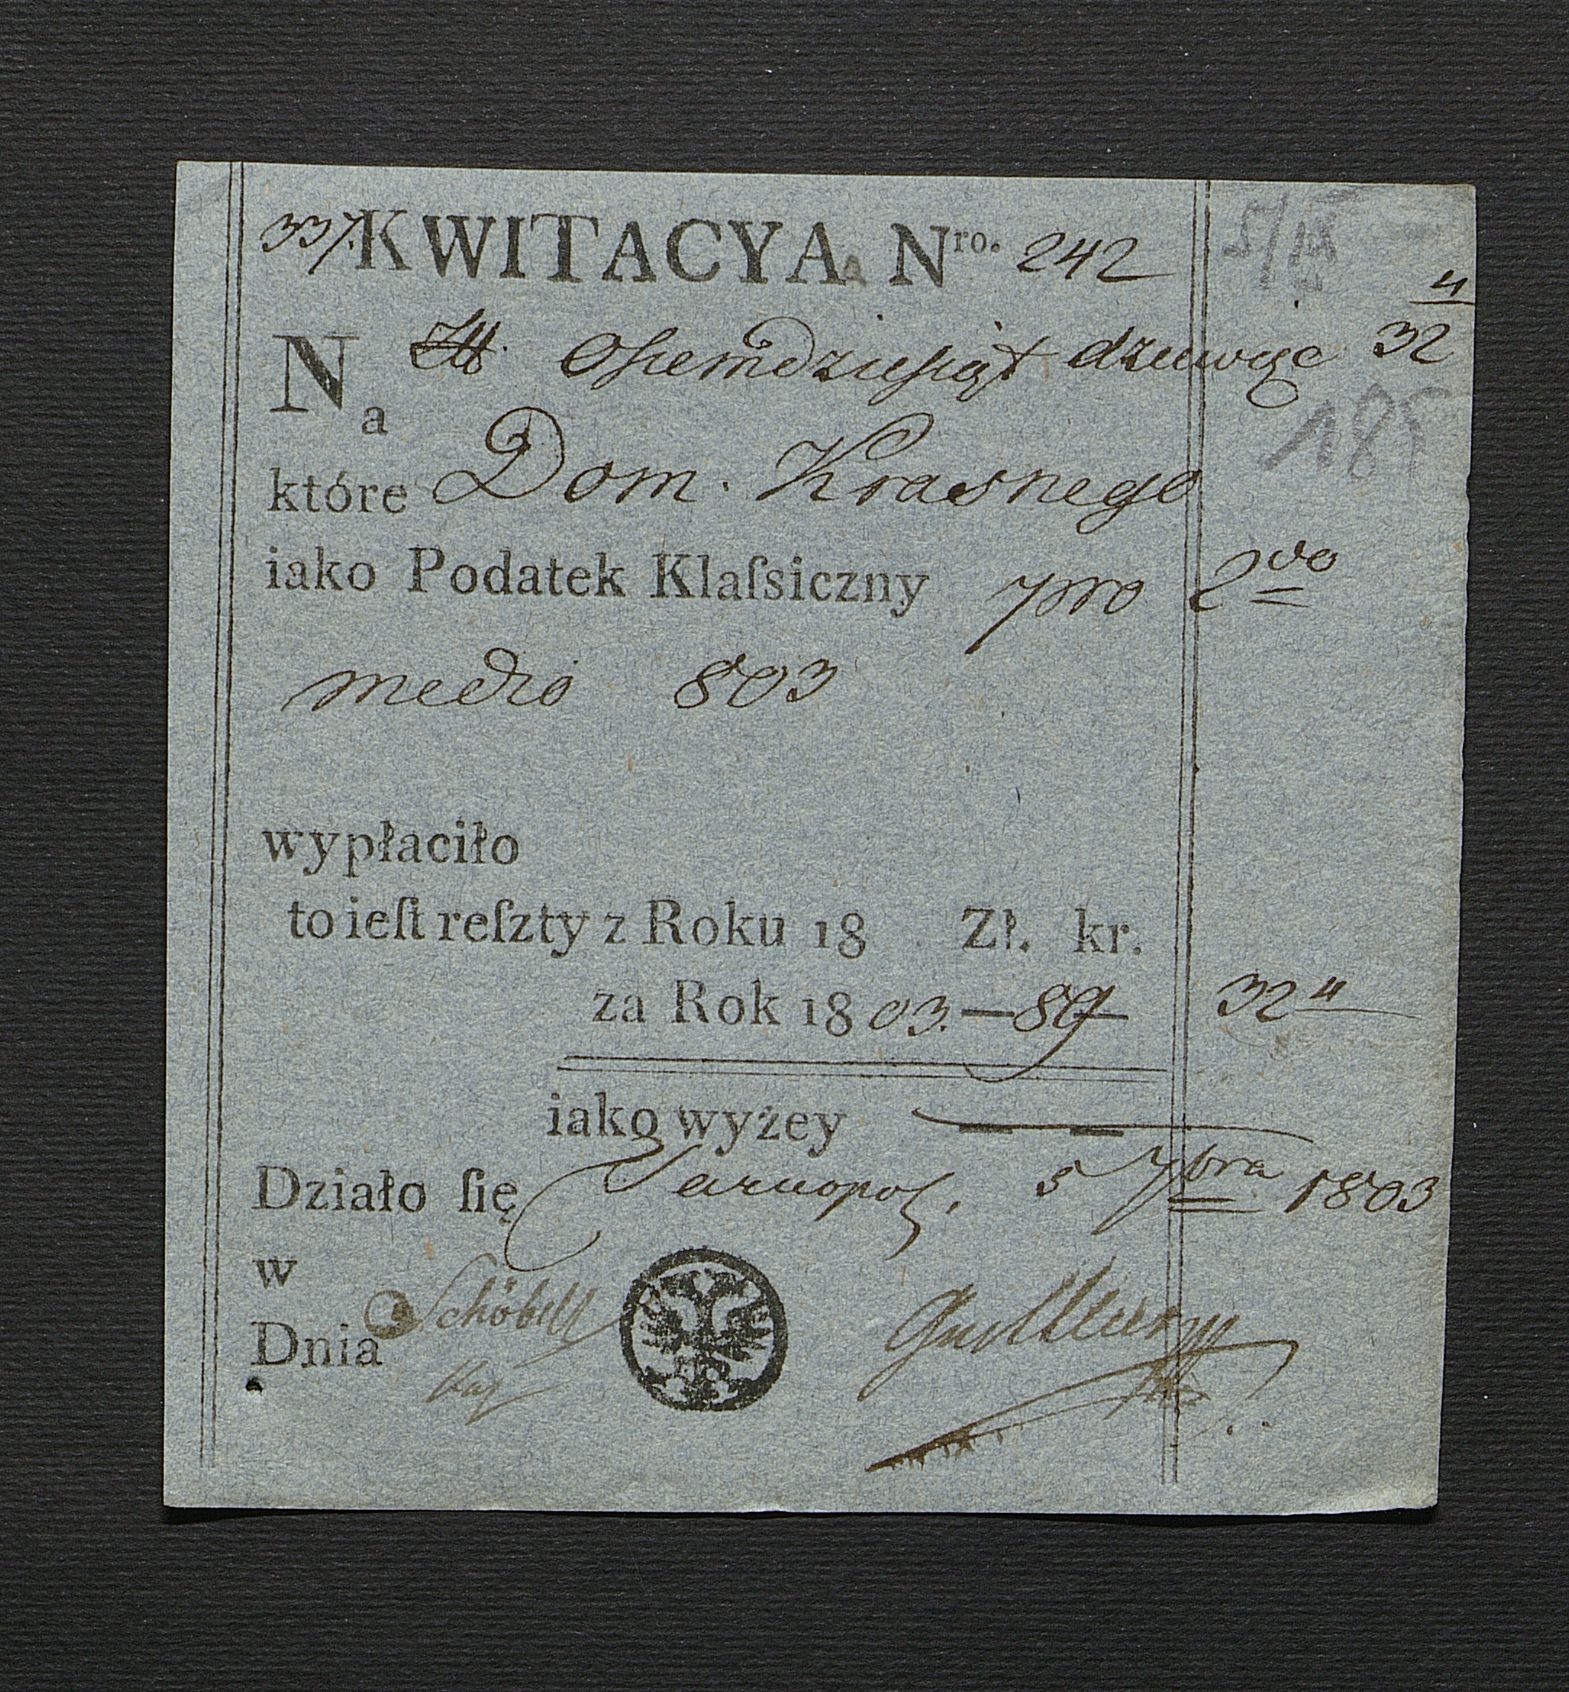 337. KWITACYA Nro. 242
Na Zł. Osiemdziesiąt dziewięc 32
które Dom. Krasnego
iako Podatek Klaſsiczny pro 2do
medio 803
wypłaciło
to ieſt reſzty z Roku 18 Zł. kr.
za Rok 1803. — 89 — 32
iako wyżey — —
Działo ſię Tarnopol. 5 7bra 1803
w
Dnia
Schöbell